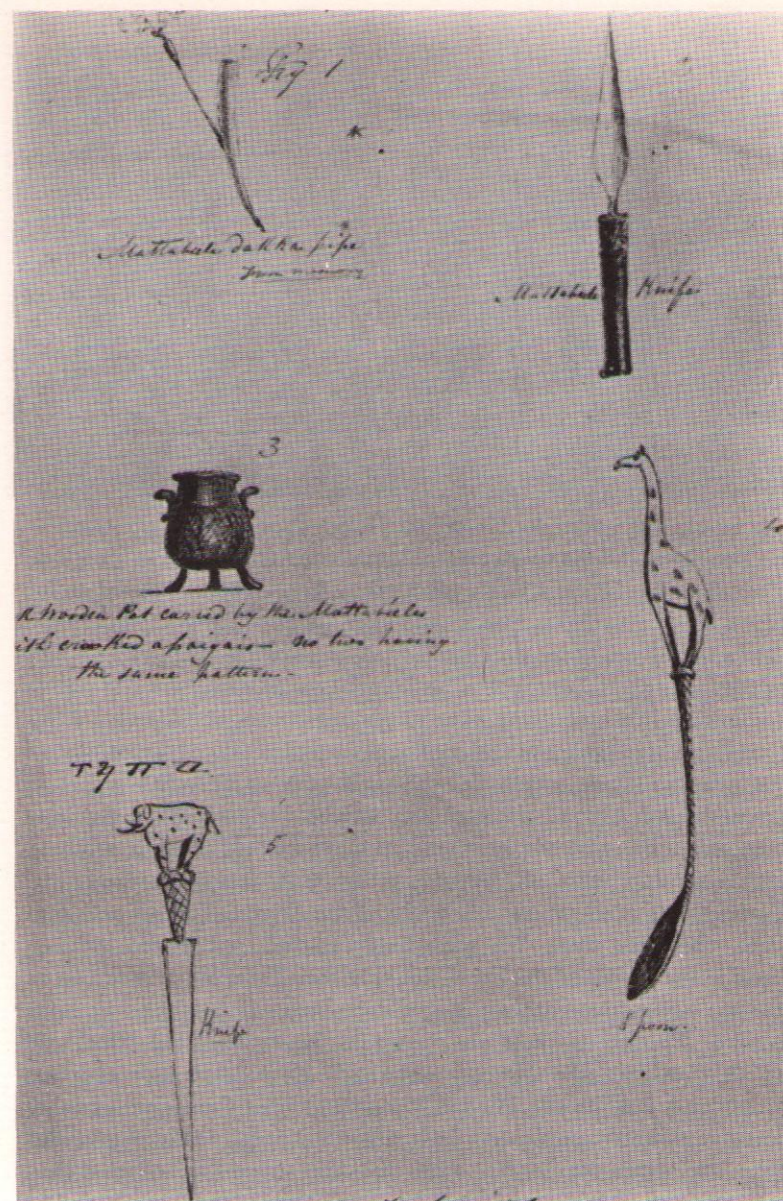 Fig 1
Mattabele Dakka pipe
from memory
Mattabele Knife
3
A Wooden Pot carved by the Mattabeles
with crooked assaigais — no two having
the same pattern —
5
Knife
Spoon.